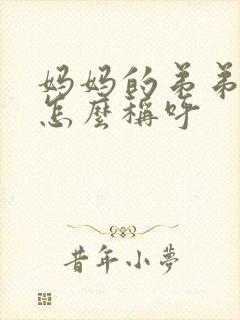 妈妈的弟弟
怎麼稱呼
昔年小夢